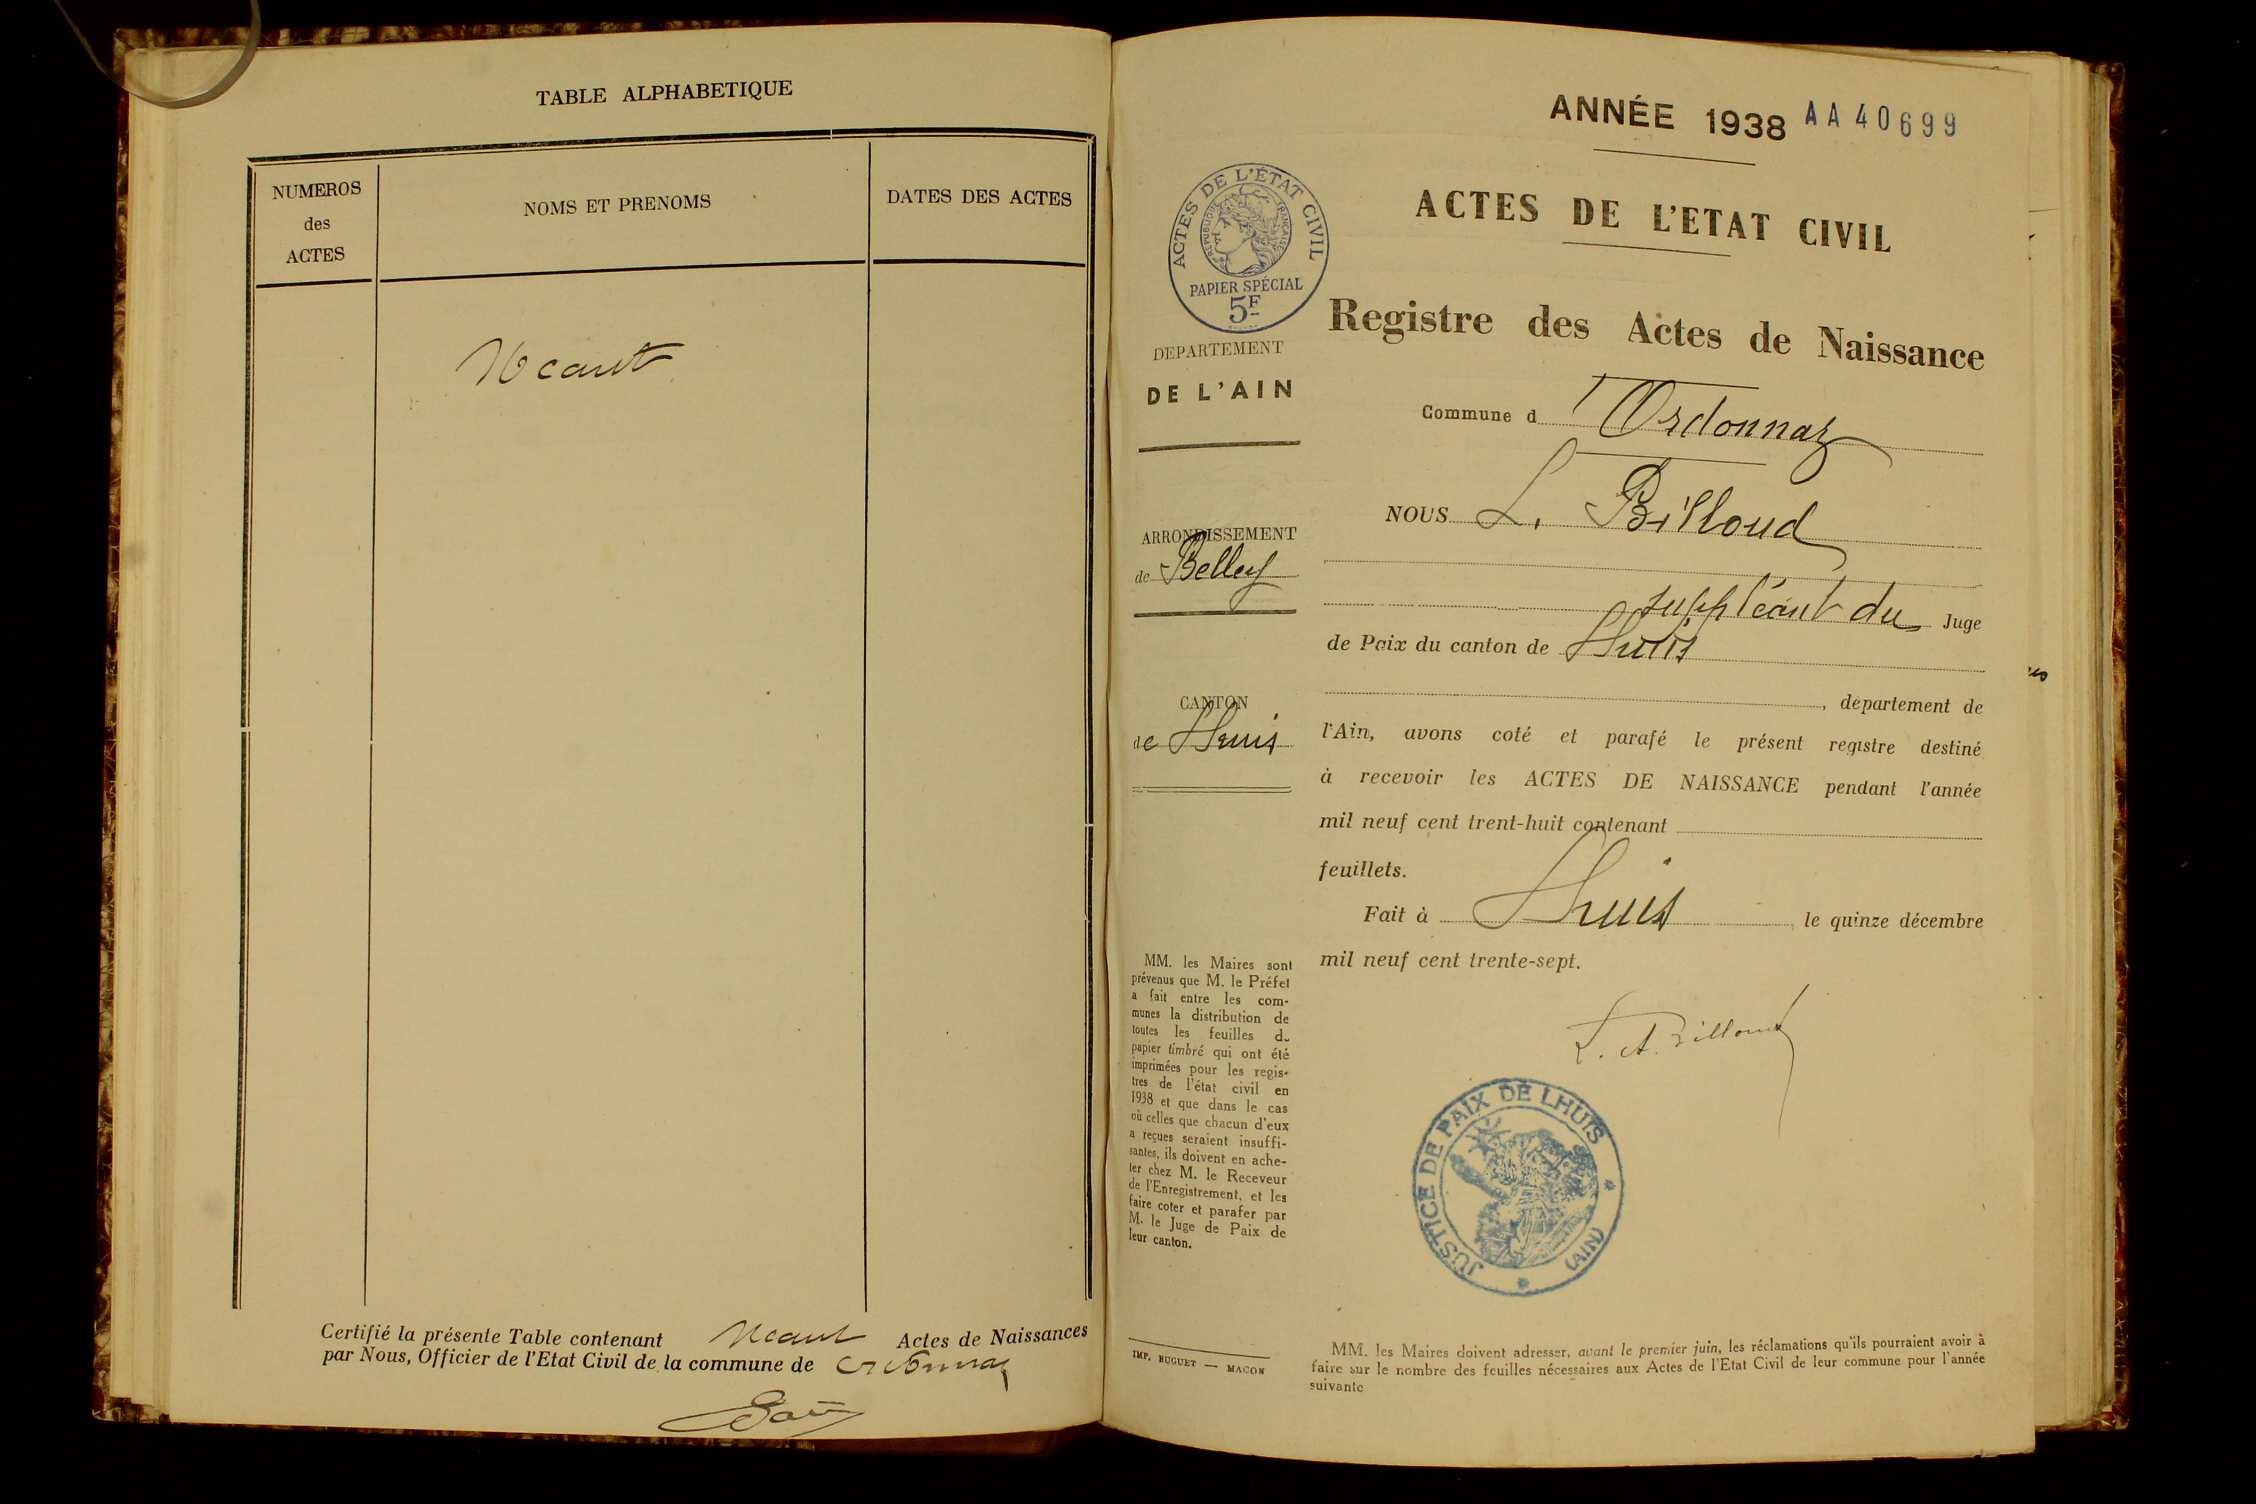 TABLE ALPHABETIQUE
NUMEROS
des
ACTES
NOMS ET PRENOMS
DATES DES ACTES
Néant
Certifié la présente Table contenant Néant Actes de Naissances
par Nous, Officier de l'Etat Civil de la commune de Ordonnaz
ANNÉE 1938 AA40699
ACTES DE L'ÉTAT CIVIL
RÉPUBLIQUE FRANÇAISE
PAPIER SPÉCIAL
5F
DEPARTEMENT
DE L'AIN
ARRONDISSEMENT
de Belley
CANTON
de Lhuis
MM. les Maires sont
prévenus que M. le Préfet
a fait entre les com-
munes la distribution de
toutes les feuilles du
papier timbré qui ont été
imprimées pour les regis-
tres de l'état civil en
1938 et que dans le cas
où celles que chacun d'eux
a reçues seraient insuffi-
santes, ils doivent en ache-
ter chez M. le Receveur
de l'Enregistrement, et les
faire coter et parafer par
M. le Juge de Paix de
leur canton.
IMP. BUGUET — MACON
ACTES DE L'ETAT CIVIL
Registre des Actes de Naissance
Commune d'Ordonnaz
NOUS L. Billoud
suppléant du Juge
de Paix du canton de Lhuis
, departement de
l'Ain, avons coté et parafé le présent registre destiné
à recevoir les ACTES DE NAISSANCE pendant l'année
mil neuf cent trent-huit contenant
feuillets.
Fait à Lhuis, le quinze décembre
mil neuf cent trente-sept.
L. A. Billoud
JUSTICE DE PAIX DE LHUIS
(AIN)
MM. les Maires doivent adresser, avant le premier juin, les réclamations qu'ils pourraient avoir à
faire sur le nombre des feuilles nécessaires aux Actes de l'Etat Civil de leur commune pour l'année
suivante